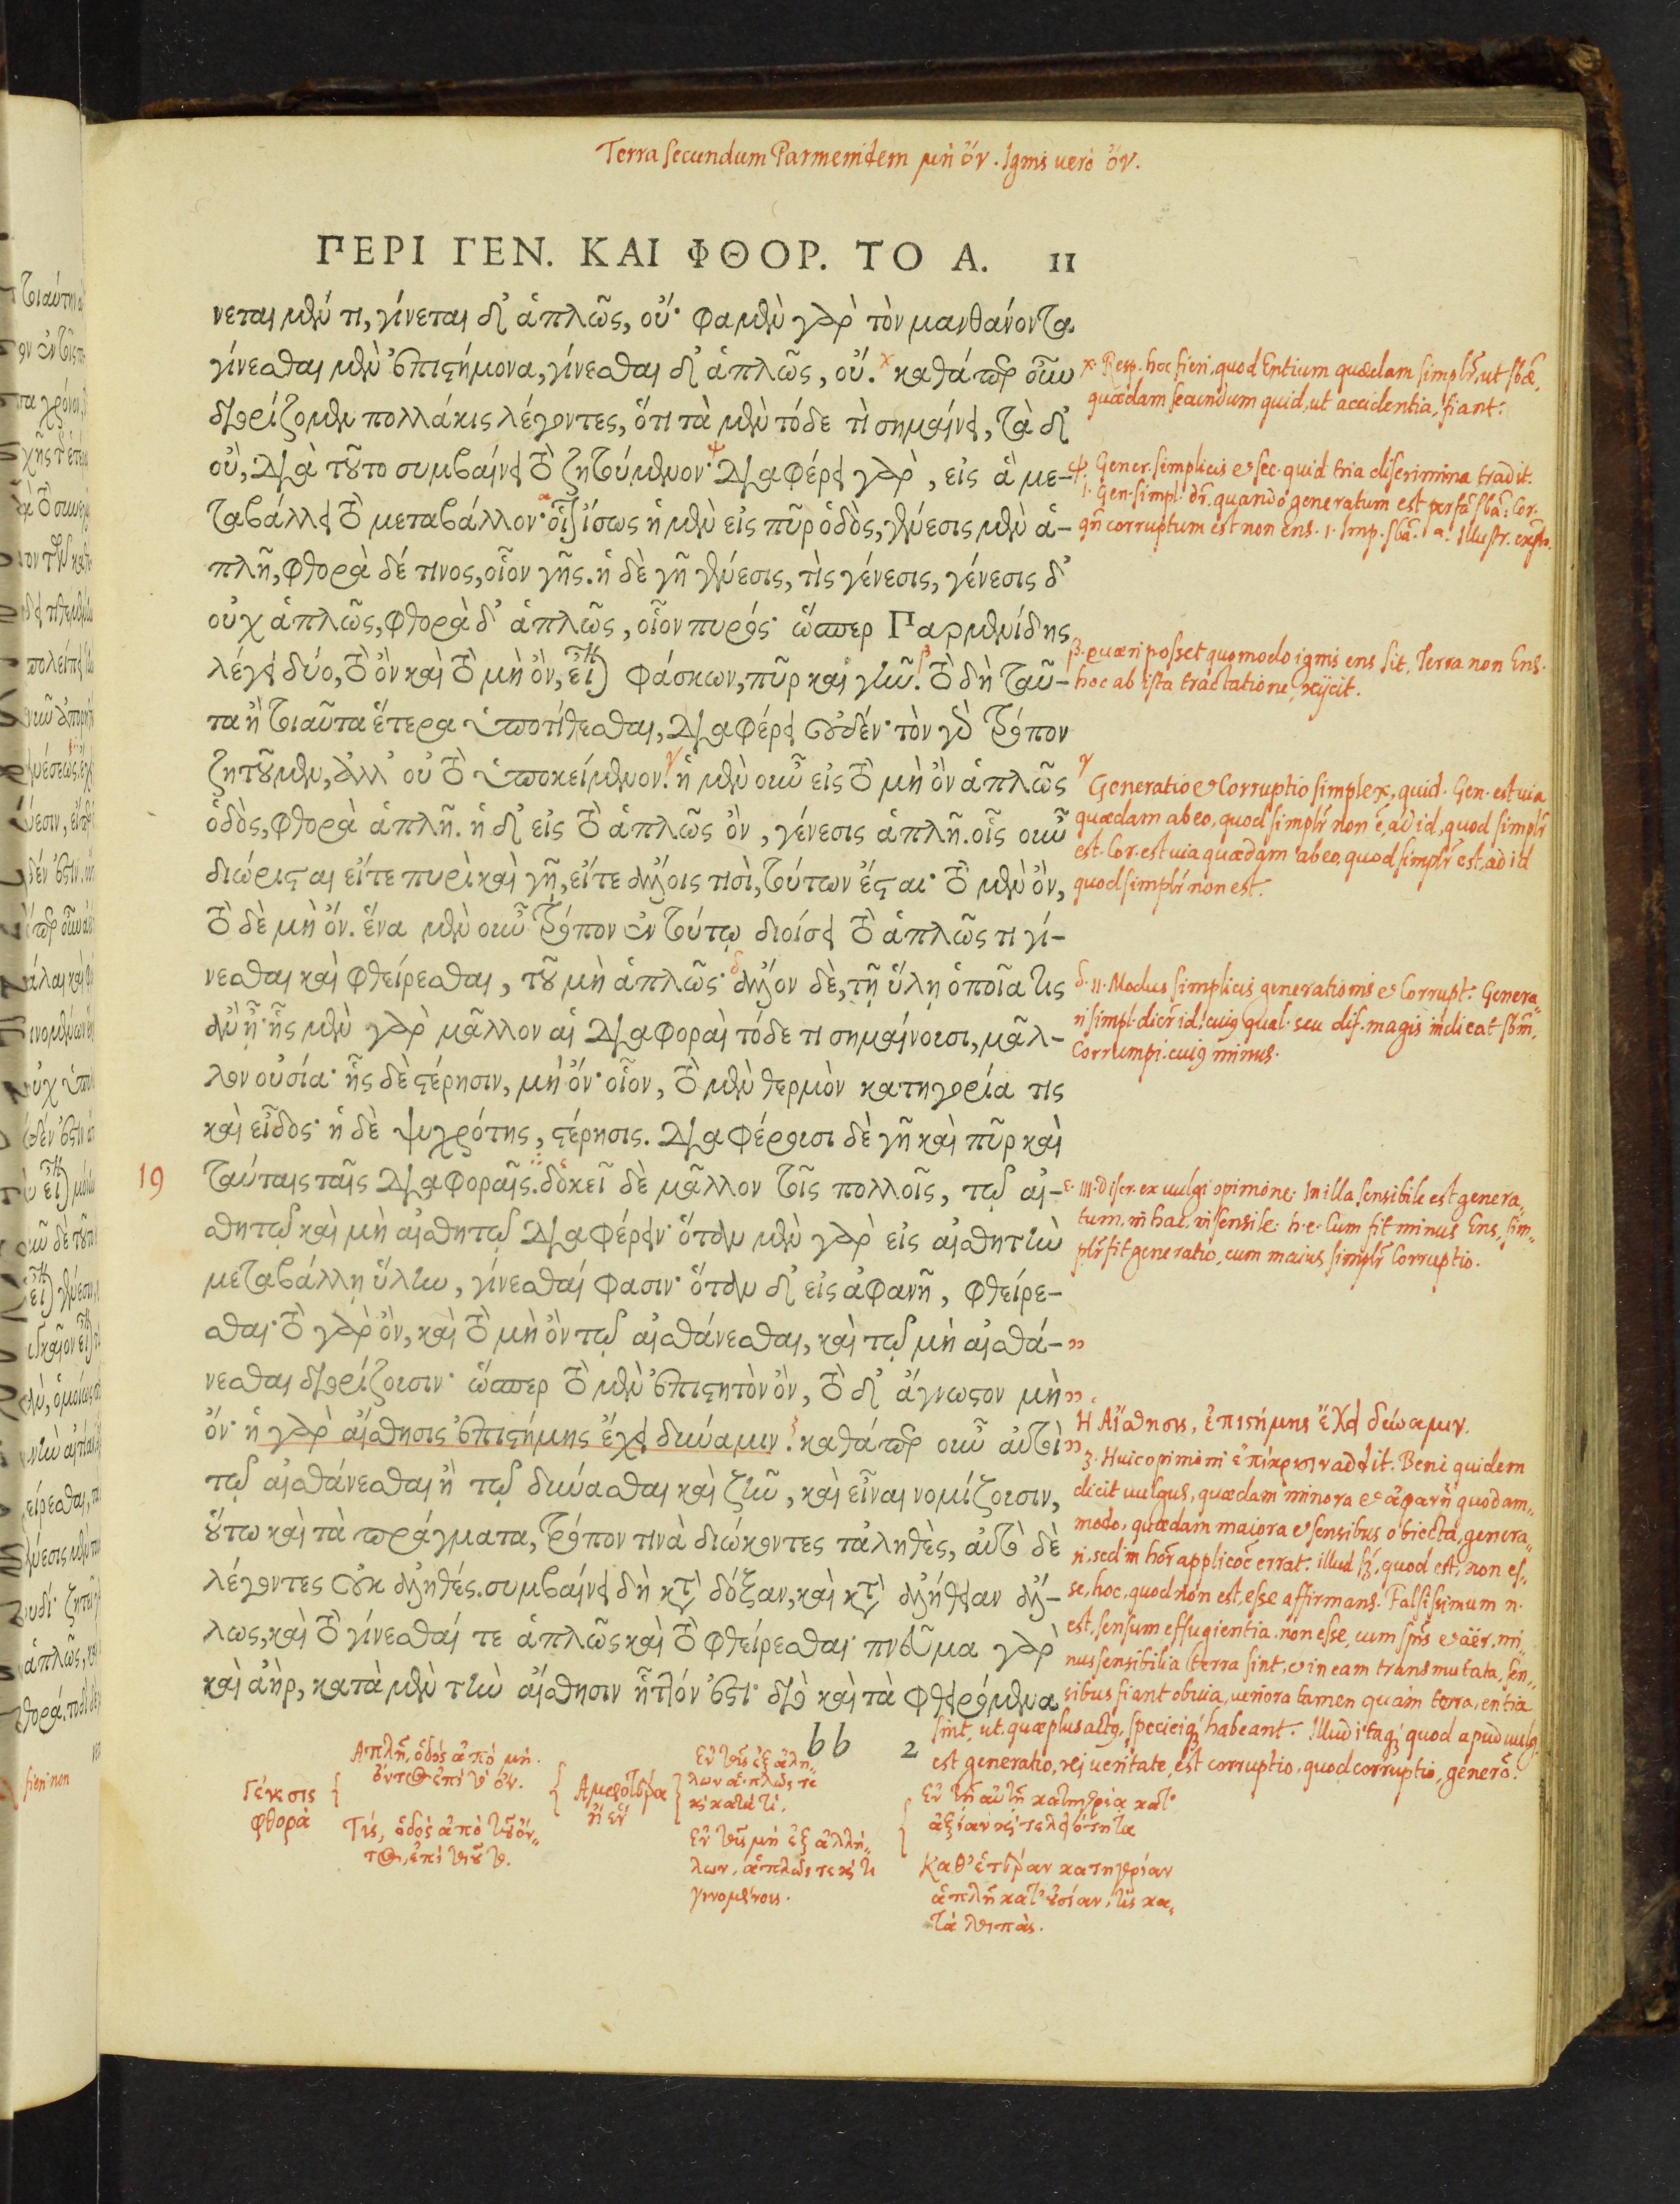 Terra secundum Parmenidem μὴ ὄν. Ignis uero ὄν.
ΠΕΡΙ ΓΕΝ. ΚΑΙ ΦΘΟΡ. ΤΟ Α. 11
νεται μὲν τι, γίνεται δ' ἁπλῶς, οὔ· φαμὲν γὰρ τὸν μανθάνοντα
γίνεσθαι μὲν ἐπιστήμονα, γίνεσθαι δ' ἁπλῶς, οὔ. χ καθάπερ οὖν
διορίζομεν πολλάκις λέγοντες, ὅτι τὰ μὲν τόδε τὶ σημαίνει, τὰ δ'
οὔ, διὰ τοῦτο συμβαίνει τὸ ζητούμενον· ψ διαφέρει γὰρ, εἰς ἃ με-
ταβάλλει τὸ μεταβάλλον· α οἷον ἴσως ἡ μὲν εἰς πῦρ ὁδὸς, γένεσις μὲν ἁ-
πλῆ, φθορὰ δέ τινος, οἷον γῆς. ἡ δὲ γῆ γένεσις, τὶς γένεσις, γένεσις δ'
οὐχ ἁπλῶς, φθορὰ δ' ἁπλῶς, οἷον πυρός· ὥσπερ Παρμενίδης
λέγει δύο, τὸ ὂν καὶ τὸ μὴ ὂν, εἶναι φάσκων, πῦρ καὶ γῆν. β τὸ δὴ ταῦ-
τα ἢ τοιαῦτα ἕτερα ὑποτίθεσθαι, διαφέρει οὐδέν· τὸν γὰρ τρόπον
ζητοῦμεν, ἀλλ' οὐ τὸ ὑποκείμενον. γ ἡ μὲν οὖν εἰς τὸ μὴ ὂν ἁπλῶς
ὁδὸς, φθορὰ ἁπλῆ. ἡ δ' εἰς τὸ ἁπλῶς ὂν, γένεσις ἁπλῆ. οἷς οὖν
διώρισται εἴτε πυρὶ καὶ γῆ, εἴτε ἄλλοις τισὶ, τούτων ἔσται· τὸ μὲν ὂν,
τὸ δὲ μὴ ὄν. ἕνα μὲν οὖν τρόπον ἐν τούτῳ διοίσει τὸ ἁπλῶς τι γί-
νεσθαι καὶ φθείρεσθαι, τοῦ μὴ ἁπλῶς· δ ἄλλον δὲ, τῇ ὕλῃ ὁποῖα τις
ἂν ᾖ· ἧς μὲν γὰρ μᾶλλον αἱ διαφοραὶ τόδε τι σημαίνουσι, μᾶλ-
λον οὐσία· ἧς δὲ στέρησιν, μὴ ὄν· οἷον, τὸ μὲν θερμὸν κατηγορία τις
καὶ εἶδος· ἡ δὲ ψυχρότης, στέρησις. διαφέρουσι δὲ γῆ καὶ πῦρ καὶ
19 ταύταις ταῖς διαφοραῖς. ε δοκεῖ δὲ μᾶλλον τοῖς πολλοῖς, τῷ αἰ-
σθητῷ καὶ μὴ αἰσθητῷ διαφέρειν· ὅταν μὲν γὰρ εἰς αἰσθητὴν
μεταβάλλῃ ὕλην, γίνεσθαί φασιν· ὅταν δ' εἰς ἀφανῆ, φθείρε-
σθαι· τὸ γὰρ ὂν, καὶ τὸ μὴ ὂν τῷ αἰσθάνεσθαι, καὶ τῷ μὴ αἰσθά- ”
νεσθαι διορίζουσιν· ὥσπερ τὸ μὲν ἐπιστητὸν ὂν, τὸ δ' ἄγνωστον μὴ ”
ὄν· ἡ γὰρ αἴσθησις ἐπιστήμης ἔχει δύναμιν. ζ καθάπερ οὖν αὐτοὶ ”
τῷ αἰσθάνεσθαι ἢ τῷ δύνασθαι καὶ ζῆν, καὶ εἶναι νομίζουσιν,
οὕτω καὶ τὰ πράγματα, τρόπον τινὰ διώκοντες τἀληθὲς, αὐτὸ δὲ
λέγοντες οὐκ ἀληθές. συμβαίνει δὴ κτ̀ δόξαν, καὶ κτ̀ ἀλήθειαν ἄλ-
λως, καὶ τὸ γίνεσθαί τε ἁπλῶς καὶ τὸ φθείρεσθαι· πνεῦμα γὰρ
καὶ ἀὴρ, κατὰ μὲν τὴν αἴσθησιν ἧττόν ἐστι· διὸ καὶ τὰ φθειρόμενα
bb 2
χ. Resp. hoc fieri, quod Entium quædam simplr̄, ut sbǣ,
quædam secundum quid, ut accidentia, fiant.
ψ. Gener. simplicis & sec. quid tria discrimina tradit.
1. Gen. simpl. dr̄. quando generatum est perfā sbā: Cor.
qn̄ corruptum est non ens. 1. Imp. sbā.
β. quæri posset quomodo ignis ens sit, Terra non Ens.
hoc ab ista tractatione reijcit.
γ Generatio & Corruptio simplex, quid. Gen. est uia
quædam ab eo, quod simplr̄ non ē, ad id, quod simplr̄
est. Cor. est uia quædam ab eo, quod simplr̄ est, ad id
quod simplr̄ non est.
δ. 11. Modus simplicis generationis & Corrupt. Genera-
ri simpl. dicr̄ id: cuiq qual. seu dif. magis indicat sbm̄.
Corrumpi. cuiq minus.
ε. 111. Discr. ex uulgi opinione. In illa sensibile est genera-
tum, in hac, insensile. h.e. Cum fit minus Ens, sim-
plr̄ fit generatio, cum maius simplr̄ Corruptio.
Η Αἴσθησις, ἐπιστήμης ἔχει δύναμιν.
ζ. Huic opinioni ἐπίκρισιν addit. Bene quidem
dicit uulgus, quædam minora & ἀφανῆ quodam-
modo, quædam maiora & sensibus obiecta, genera-
ri, sed in hor̄ applicōe errat. illud sz̄, quod est, non es-
se, hoc, quod non est, esse affirmans. Falsissimum n.
est, sensum effugientia non esse, cum spūs & aër, mi-
nus sensibilia terra sint, & in eam transmutata, sen-
sibus fiant obuia, ueriora tamen quàm terra, entia
sint, ut quæ plus actq, specieiq habeant. Illud itaq quod apud uulg.
est generatio, rei ueritate, est corruptio, quod corruptio, generō.
Γένεσις
φθορὰ
Απλῆ, ὁδὸς ἀπὸ μὴ
ὄντος ἐπὶ τὸ ὄν.
Τὶς, ὁδὸς ἀπὸ τοῦ ὄν-
τος, ἐπὶ
Αμφότερα
ἢ ἐν
Εν τοῖς ἐξ ἀλλή-
λων ἁπλῶς τε
καὶ κατά τί.
Εν τοῖς μὴ ἐξ ἀλλή-
λων, ἁπλῶς τε καὶ τι
γινομένοις.
Εν τῇ αὐτῇ κατηγορίᾳ κατ'
ἀξίαν καὶ τελειότητα
Καθ' ἑτέραν κατηγορίαν
ἁπλῆ κατ' οὐσίαν, τὶς κα-
τὰ λοιπὰς.